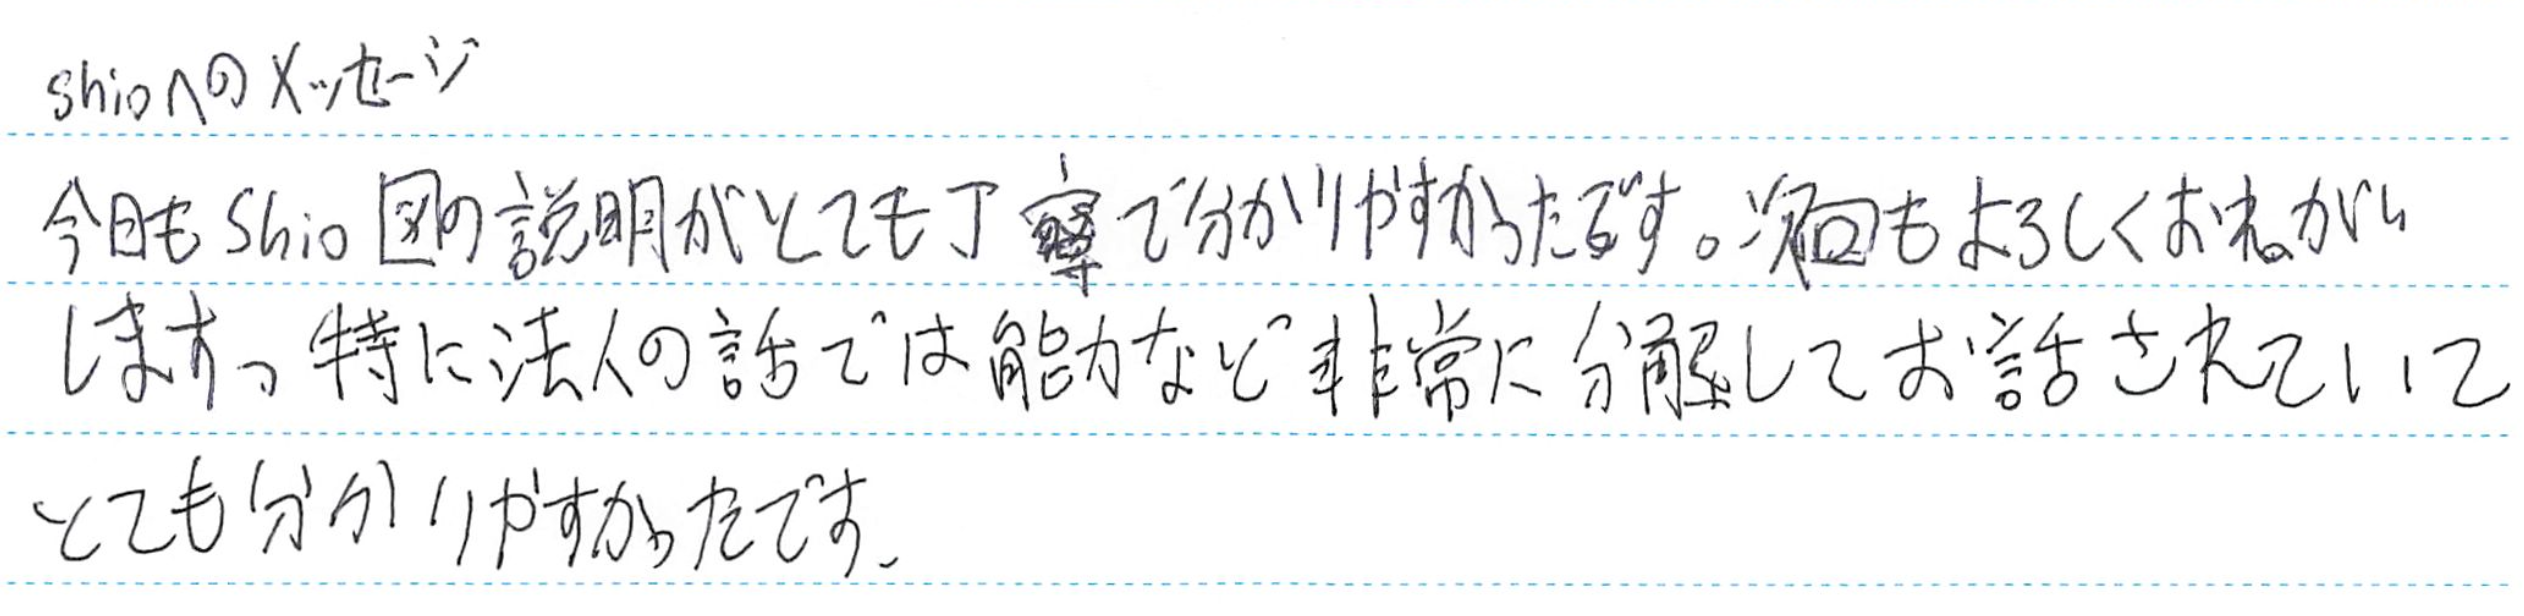 shioへのメッセージ
今日もShio図の説明がとても丁寧で分かりやすかったです。次回もよろしくおねがい
します。特に法人の話では能力など非常に分解してお話されていて
とても分かりやすかったです。